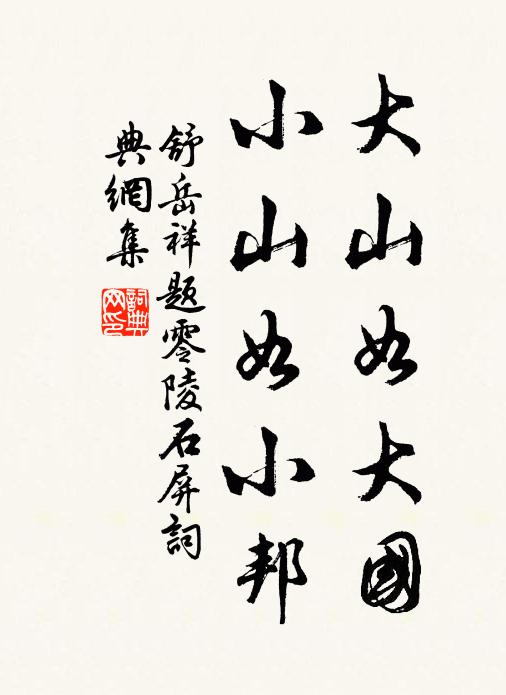 大山如大國
小山如小邦
舒岳祥題零陵石屏詞
典網集
詞典网印